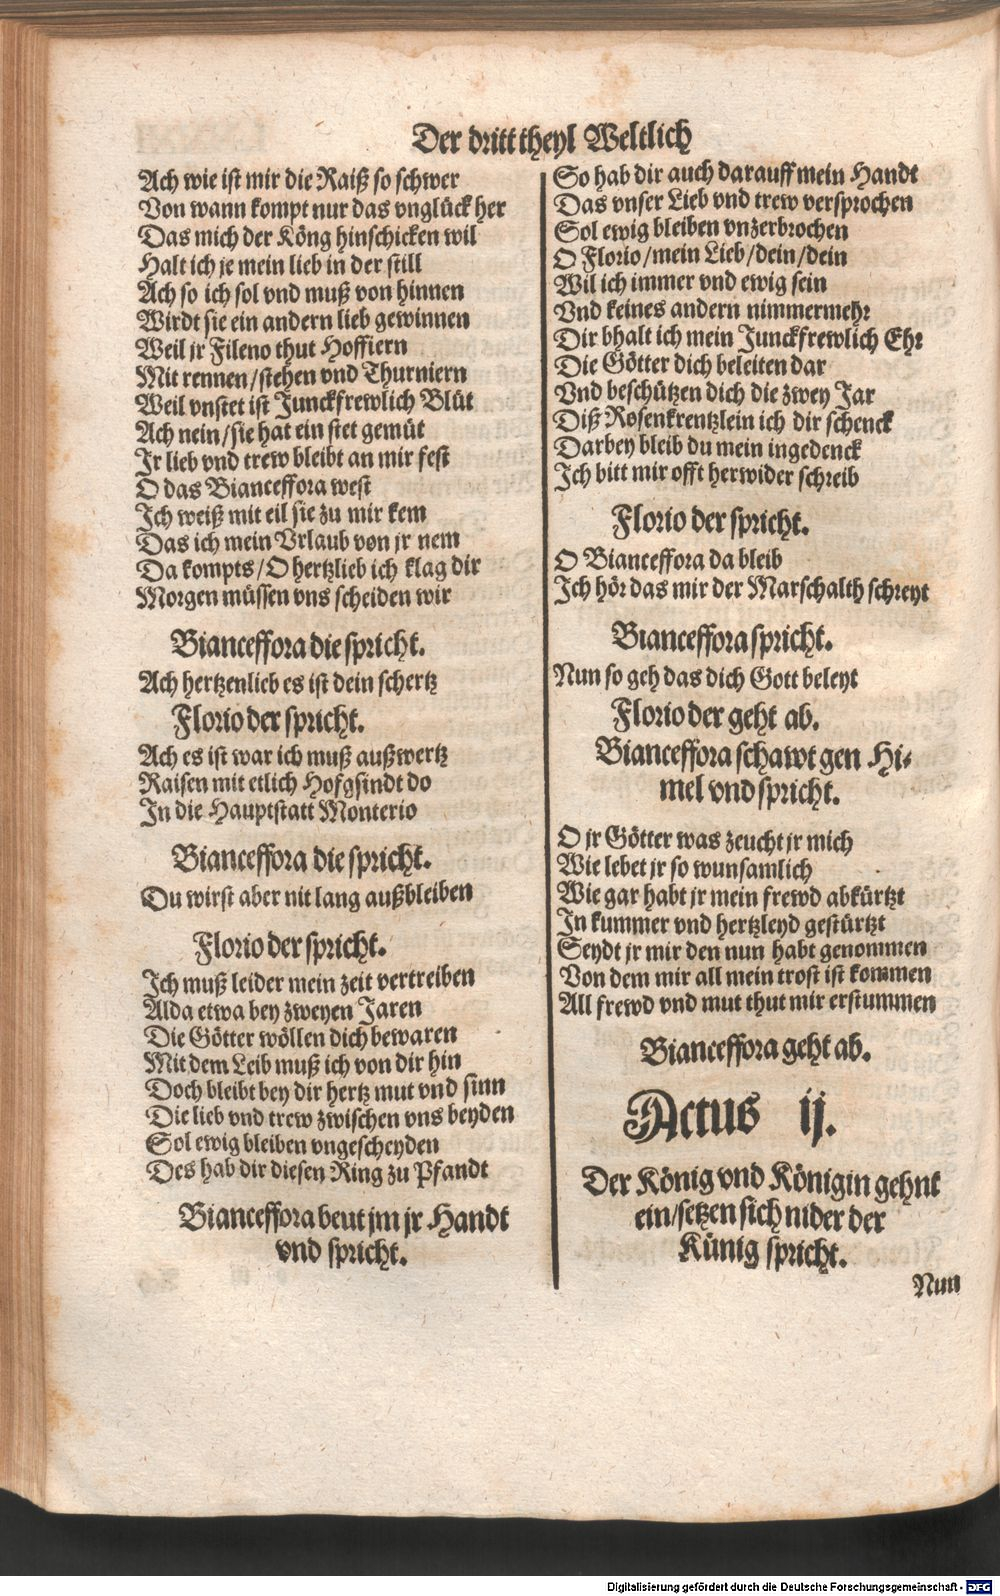 Der dritt theyl Weltlich
Ach wie ist mir die Raiß so schwer
Von wann kompt nur das vnglück her
Das mich der Köng hinschicken wil
Halt ich je mein lieb in der still
Ach so ich sol vnd muß von hinnen
Wirdt sie ein andern lieb gewinnen
Weil jr Fileno thut Hoffiern
Mit rennen/stehen vnd Thurniern
Weil vnstet ist Junckfrewlich Blüt
Ach nein/sie hat ein stet gemüt
Jr lieb vnd trew bleibt an mir fest
O das Bianceffora west
Ich weiß mit eil sie zu mir kem
Das ich mein Vrlaub von jr nem
Da kompts/O hertzlieb ich klag dir
Morgen müssen vns scheiden wir
Bianceffora die spricht.
Ach hertzenlieb es ist dein schertz
Florio der spricht.
Ach es ist war ich muß außwertz
Raisen mit etlich Hofgsindt do
In die Hauptstatt Monterio
Bianceffora die spricht.
Du wirst aber nit lang außbleiben
Florio der spricht.
Ich muß leider mein zeit vertreiben
Alda etwa bey zweyen Jaren
Die Götter wöllen dich bewaren
Mit dem Leib muß ich von dir hin
Doch bleibt bey dir hertz mut vnd sinn
Die lieb vnd trew zwischen vns beyden
Sol ewig bleiben vngescheyden
Des hab dir diesen Ring zu Pfandt
Bianceffora beut jm jr Handt
vnd spricht.
So hab dir auch darauff mein Handt
Das vnser Lieb vnd trew versprochen
Sol ewig bleiben vnzerbrochen
O Florio/mein Lieb/dein/dein
Wil ich immer vnd ewig sein
Vnd keines andern nimmermehr
Dir bhalt ich mein Junckfrewlich Ehr
Die Götter dich beleiten dar
Vnd beschützen dich die zwey Jar
Diß Rosenkrentzlein ich dir schenck
Darbey bleib du mein ingedenck
Ich bitt mir offt herwider schreib
Florio der spricht.
O Bianceffora da bleib
Ich hör das mir der Marschalth schreyt
Bianceffora spricht.
Nun so geh das dich Gott beleyt
Florio der geht ab.
Bianceffora schawt gen Hi-
mel vnd spricht.
O jr Götter was zeucht jr mich
Wie lebet jr so wunsamlich
Wie gar habt jr mein frewd abkürtzt
In kummer vnd hertzleyd gestürtzt
Seydt jr mir den nun habt genommen
Von dem mir all mein trost ist kommen
All frewd vnd mut thut mir erstummen
Bianceffora geht ab.
Actus ij.
Der König vnd Königin gehnt
ein/setzen sich nider der
Künig spricht.
Nun
Digitalisierung gefördert durch die Deutsche Forschungsgemeinschaft - DFG